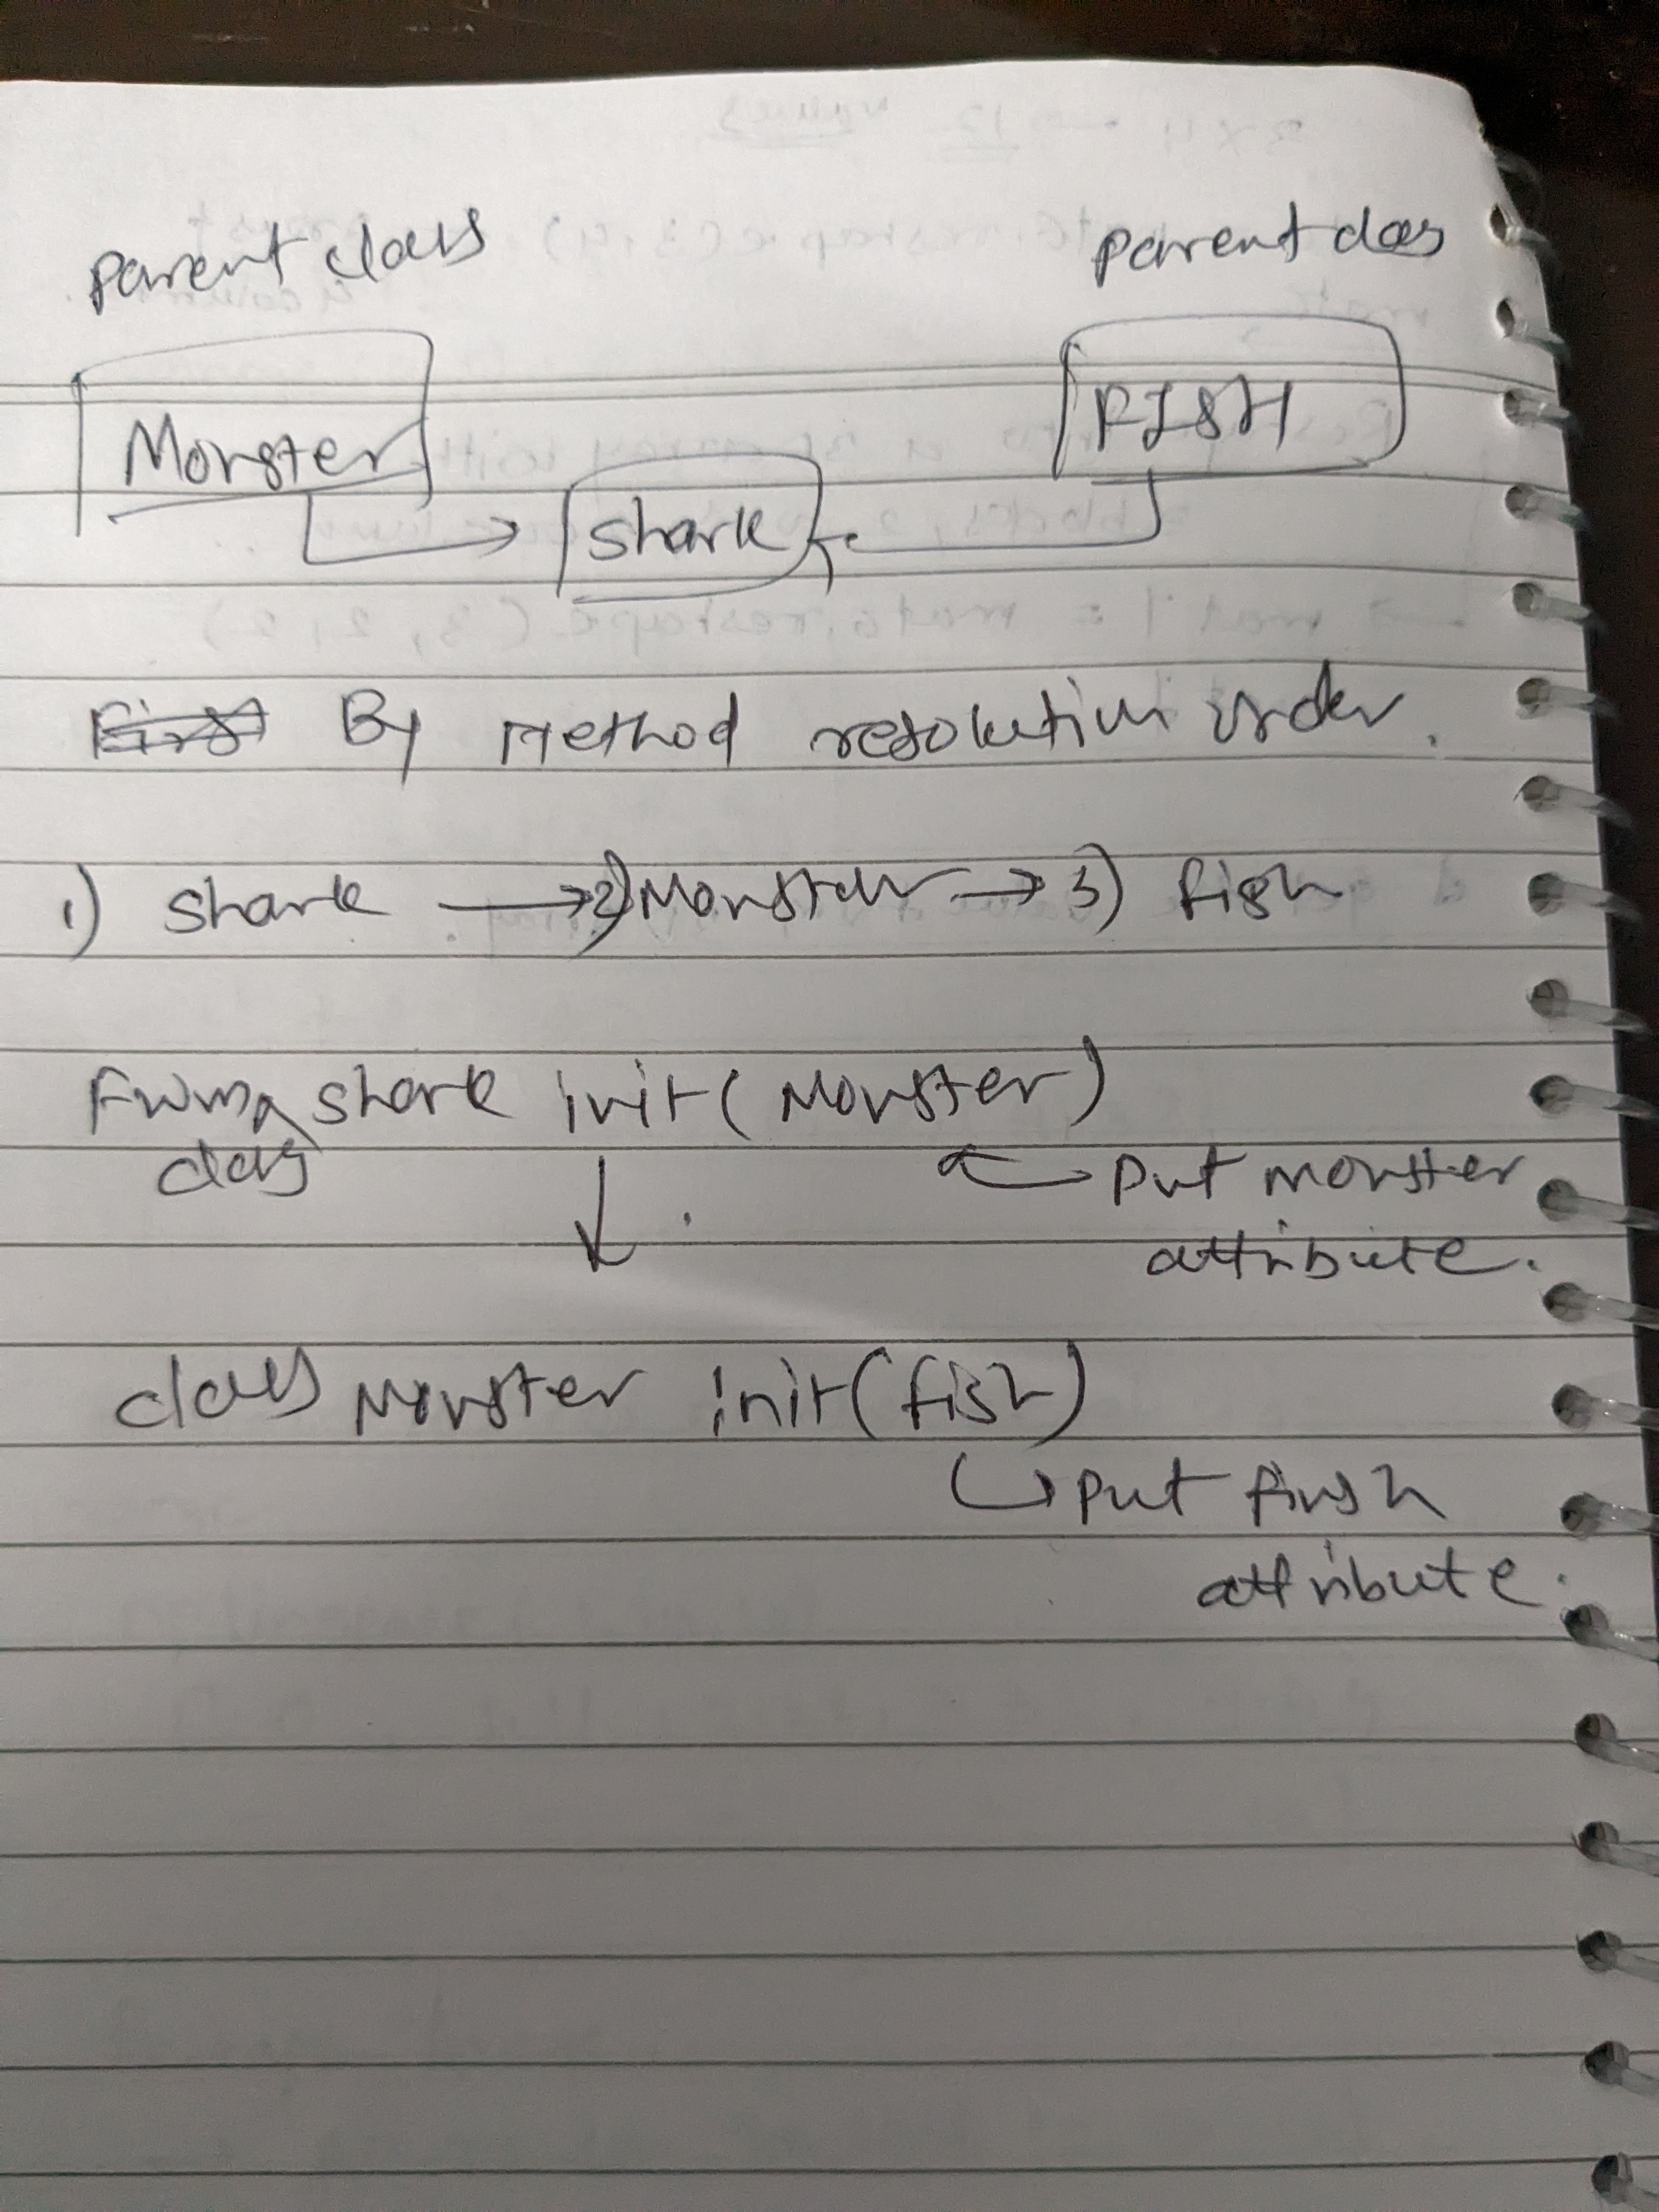 Parent class Parent class
Monster FISH
Shark
First By Method resolution order.
1) Shark → 2) Monster → 3) fish
From shark init(Monster)
class
Put monster
attribute.
class Monster init(fish)
Put fish
attribute.